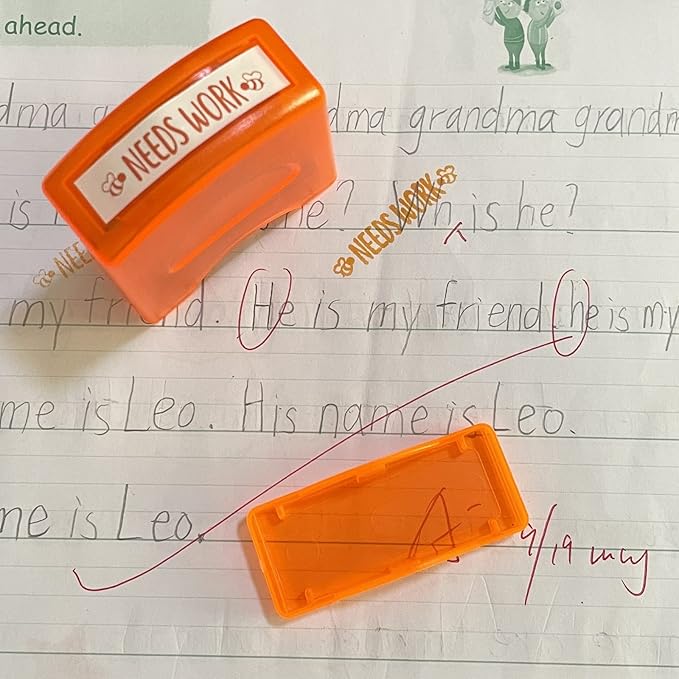 ahead.
NEEDS WORK
dma grandma grandm
is he? is he?
NEEDS WORK
NEE
my friend. He is my friend. he is my
me is Leo. His name is Leo.
me is Leo.
A-
9/19